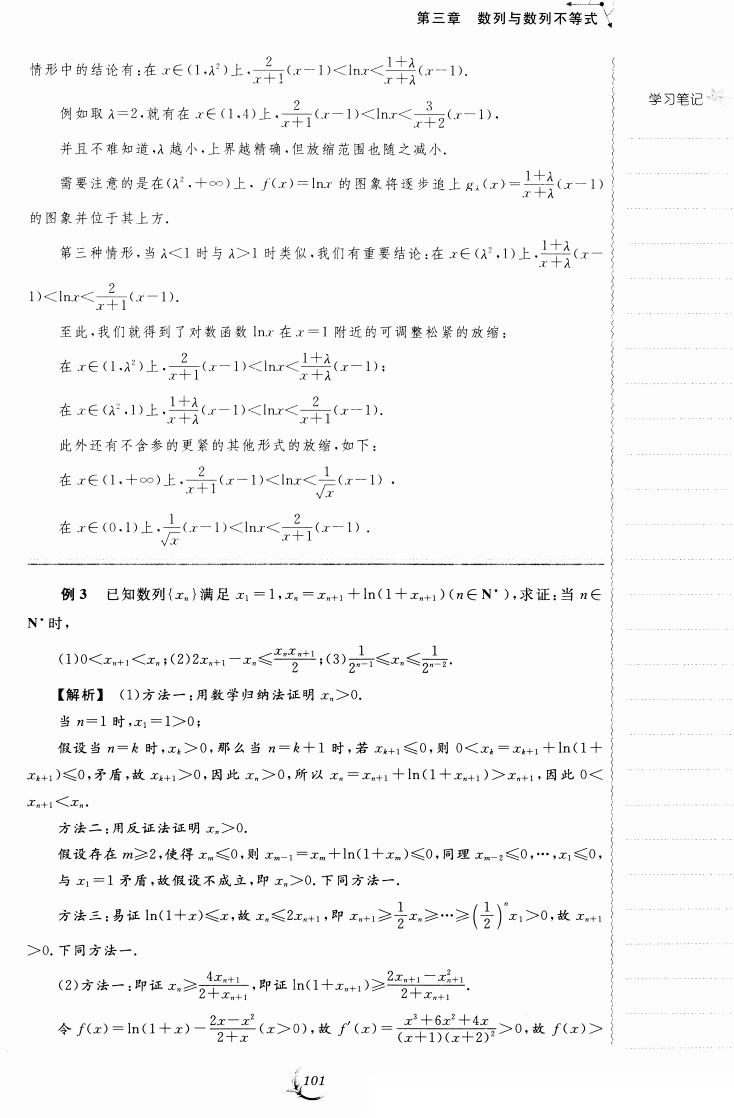 第三章 数列与数列不等式
情形中的结论有:在 x∈(1,λ²)上,\frac{2}{x+1}(x-1)<lnx<\frac{1+λ}{x+λ}(x-1).
学习笔记
例如取 λ=2,就有在 x∈(1,4)上,\frac{2}{x+1}(x-1)<lnx<\frac{3}{x+2}(x-1),
并且不难知道,λ 越小,上界越精确,但放缩范围也随之减小.
需要注意的是在(λ²,+∞)上,f(x)=lnx 的图象将逐步追上 g_λ(x)=\frac{1+λ}{x+λ}(x-1)
的图象并位于其上方.
第三种情形,当 λ<1 时与 λ>1 时类似,我们有重要结论:在 x∈(λ²,1)上,\frac{1+λ}{x+λ}(x-
1)<lnx<\frac{2}{x+1}(x-1).
至此,我们就得到了对数函数 lnx 在 x=1 附近的可调整松紧的放缩:
在 x∈(1,λ²)上,\frac{2}{x+1}(x-1)<lnx<\frac{1+λ}{x+λ}(x-1);
在 x∈(λ²,1)上,\frac{1+λ}{x+λ}(x-1)<lnx<\frac{2}{x+1}(x-1).
此外还有不含参的更紧的其他形式的放缩,如下:
在 x∈(1,+∞)上,\frac{2}{x+1}(x-1)<lnx<\frac{1}{\sqrt{x}}(x-1),
在 x∈(0,1)上,\frac{1}{\sqrt{x}}(x-1)<lnx<\frac{2}{x+1}(x-1).
例 3 已知数列{x_n}满足 x_1=1,x_n=x_{n+1}+ln(1+x_{n+1})(n∈N*),求证:当 n∈
N*时,
(1)0<x_{n+1}<x_n;(2)2x_{n+1}-x_n≤\frac{x_nx_{n+1}}{2};(3)\frac{1}{2^{n-1}}≤x_n≤\frac{1}{2^{n-2}}.
【解析】 (1)方法一:用数学归纳法证明 x_n>0.
当 n=1 时,x_1=1>0;
假设当 n=k 时,x_k>0,那么当 n=k+1 时,若 x_{k+1}≤0,则 0<x_k=x_{k+1}+ln(1+
x_{k+1})≤0,矛盾,故 x_{k+1}>0,因此 x_n>0,所以 x_n=x_{n+1}+ln(1+x_{n+1})>x_{n+1},因此 0<
x_{n+1}<x_n.
方法二:用反证法证明 x_n>0.
假设存在 m≥2,使得 x_m≤0,则 x_{m-1}=x_m+ln(1+x_m)≤0,同理 x_{m-2}≤0,…,x_1≤0,
与 x_1=1 矛盾,故假设不成立,即 x_n>0.下同方法一.
方法三:易证 ln(1+x)≤x,故 x_n≤2x_{n+1},即 x_{n+1}≥\frac{1}{2}x_n≥…≥(\frac{1}{2})^n x_1>0,故 x_{n+1}
>0.下同方法一.
(2)方法一:即证 x_n≥\frac{4x_{n+1}}{2+x_{n+1}},即证 ln(1+x_{n+1})≥\frac{2x_{n+1}-x_{n+1}^2}{2+x_{n+1}}.
令 f(x)=ln(1+x)-\frac{2x-x²}{2+x}(x>0),故 f'(x)=\frac{x³+6x²+4x}{(x+1)(x+2)²}>0,故 f(x)>
101